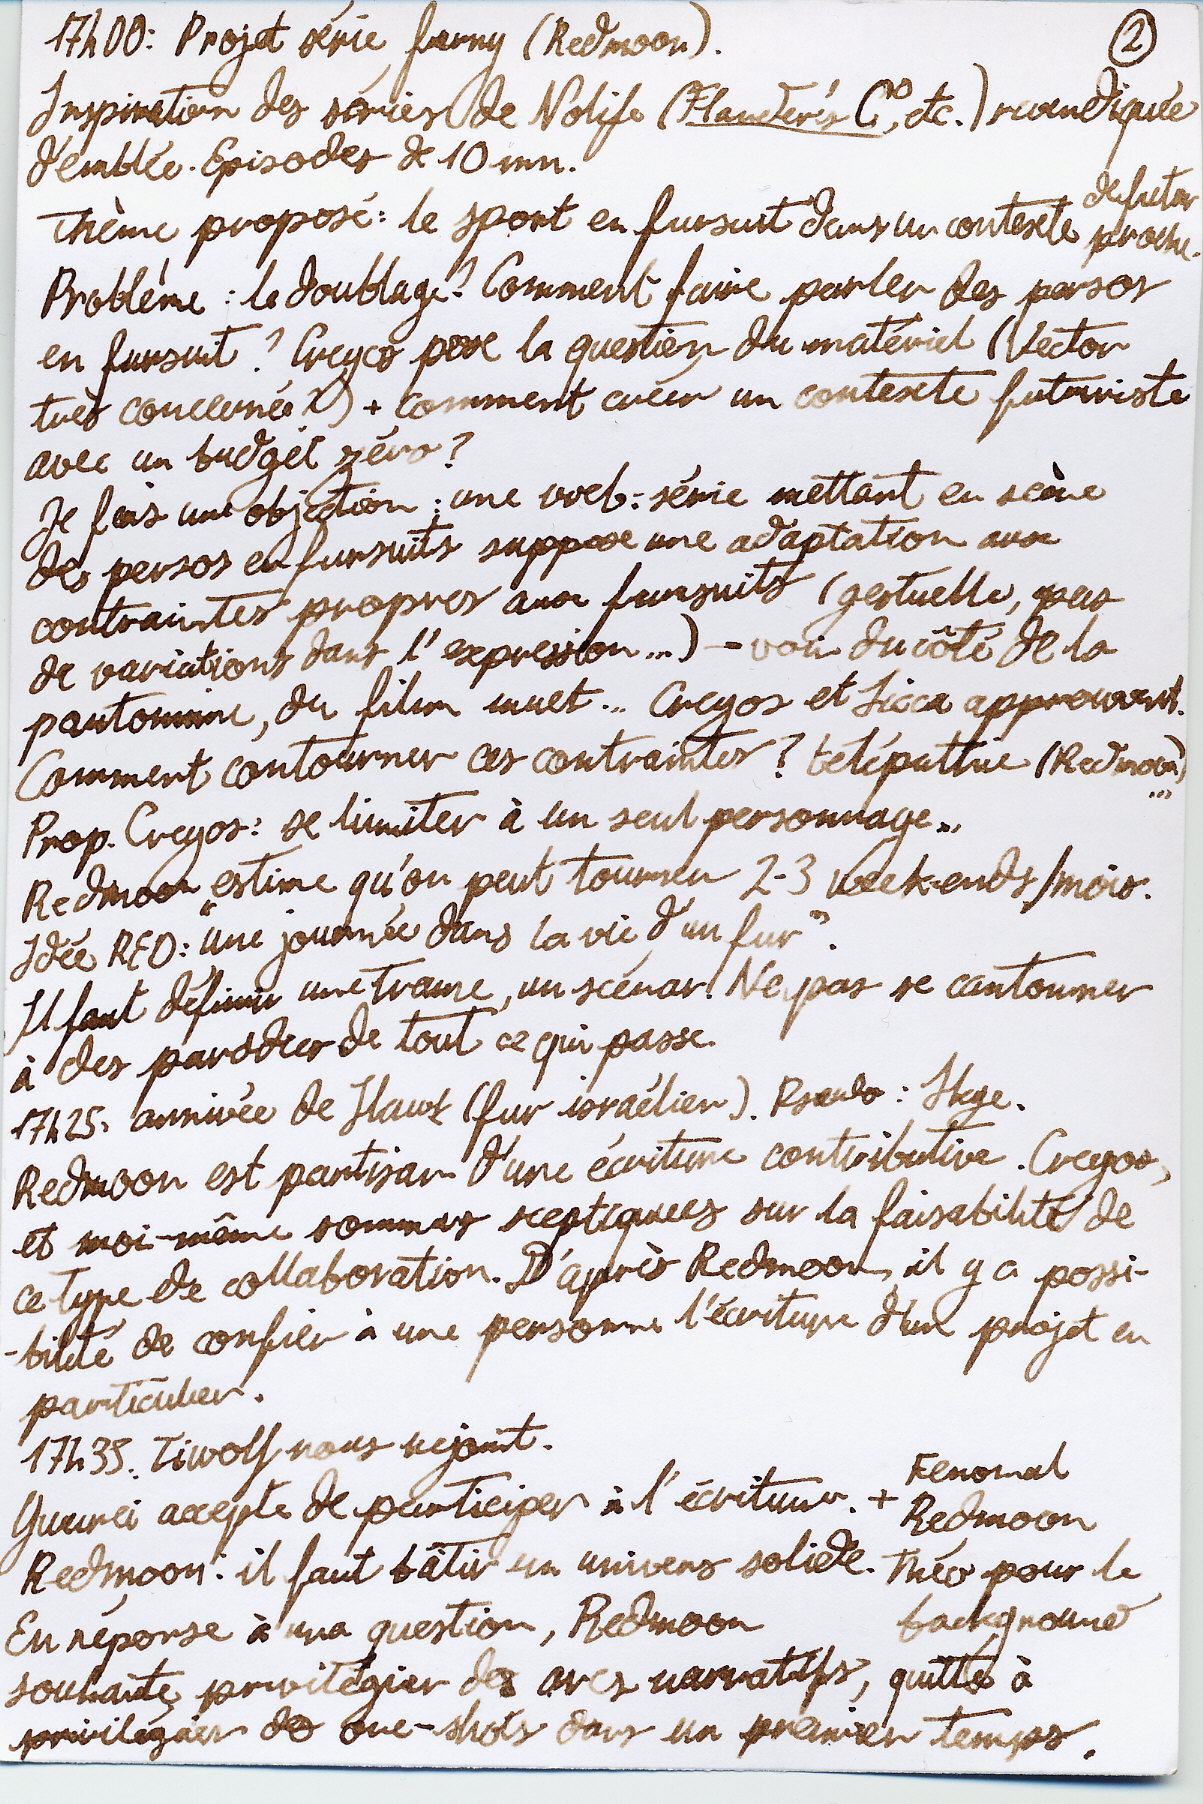 ②
17h00: Projet série furry (Redmoon).
Inspiration des séries de Nolife (Flander's C°, etc.) revendiquée
d'emblée. Episodes de 10 mn.
Thème proposé: le sport en fursuit dans un contexte de futur proche.
Problème : le doublage? Comment faire parler des persos
en fursuit ? Creyos pose la question du matériel (Vector
très concerné X)) + comment créer un contexte futuriste
avec un budget zéro?
Je fais une objection : une web-série mettant en scène
des persos en fursuits suppose une adaptation aux
contraintes propres aux fursuits (gestuelle, pas
de variations dans l'expression...) → voir du côté de la
pantomime, du film muet... Creyos et Sicca approuvent.
Comment contourner ces contraintes ? télépathie (Redmoon)...
Prop. Creyos: se limiter à un seul personnage...
Redmoon estime qu'on peut tourner 2-3 week-ends/mois.
Idée RED: "une journée dans la vie d'un fur".
Il faut définir une trame, un scénar. Ne pas se cantonner
à des parodies de tout ce qui passe.
17h25. arrivée de (fur israélien). Pseudo : Skye.
Redmoon est partisan d'une écriture contributive. Creyos,
et moi-même sommes sceptiques sur la faisabilité de
ce type de collaboration. D'après Redmoon, il y a possi-
-bilité de confier à une personne l'écriture d'un projet en
particulier.
17h35. Tiwolf nous rejoint.
accepte de participer à l'écriture. + Fenomal
Redmoon
Redmoon : il faut bâtir un univers solide. Théo pour le
background
En réponse à une question, Redmoon
souhaite privilégier des arcs narratifs, quitte à
privilégier des one-shots dans un premier temps.